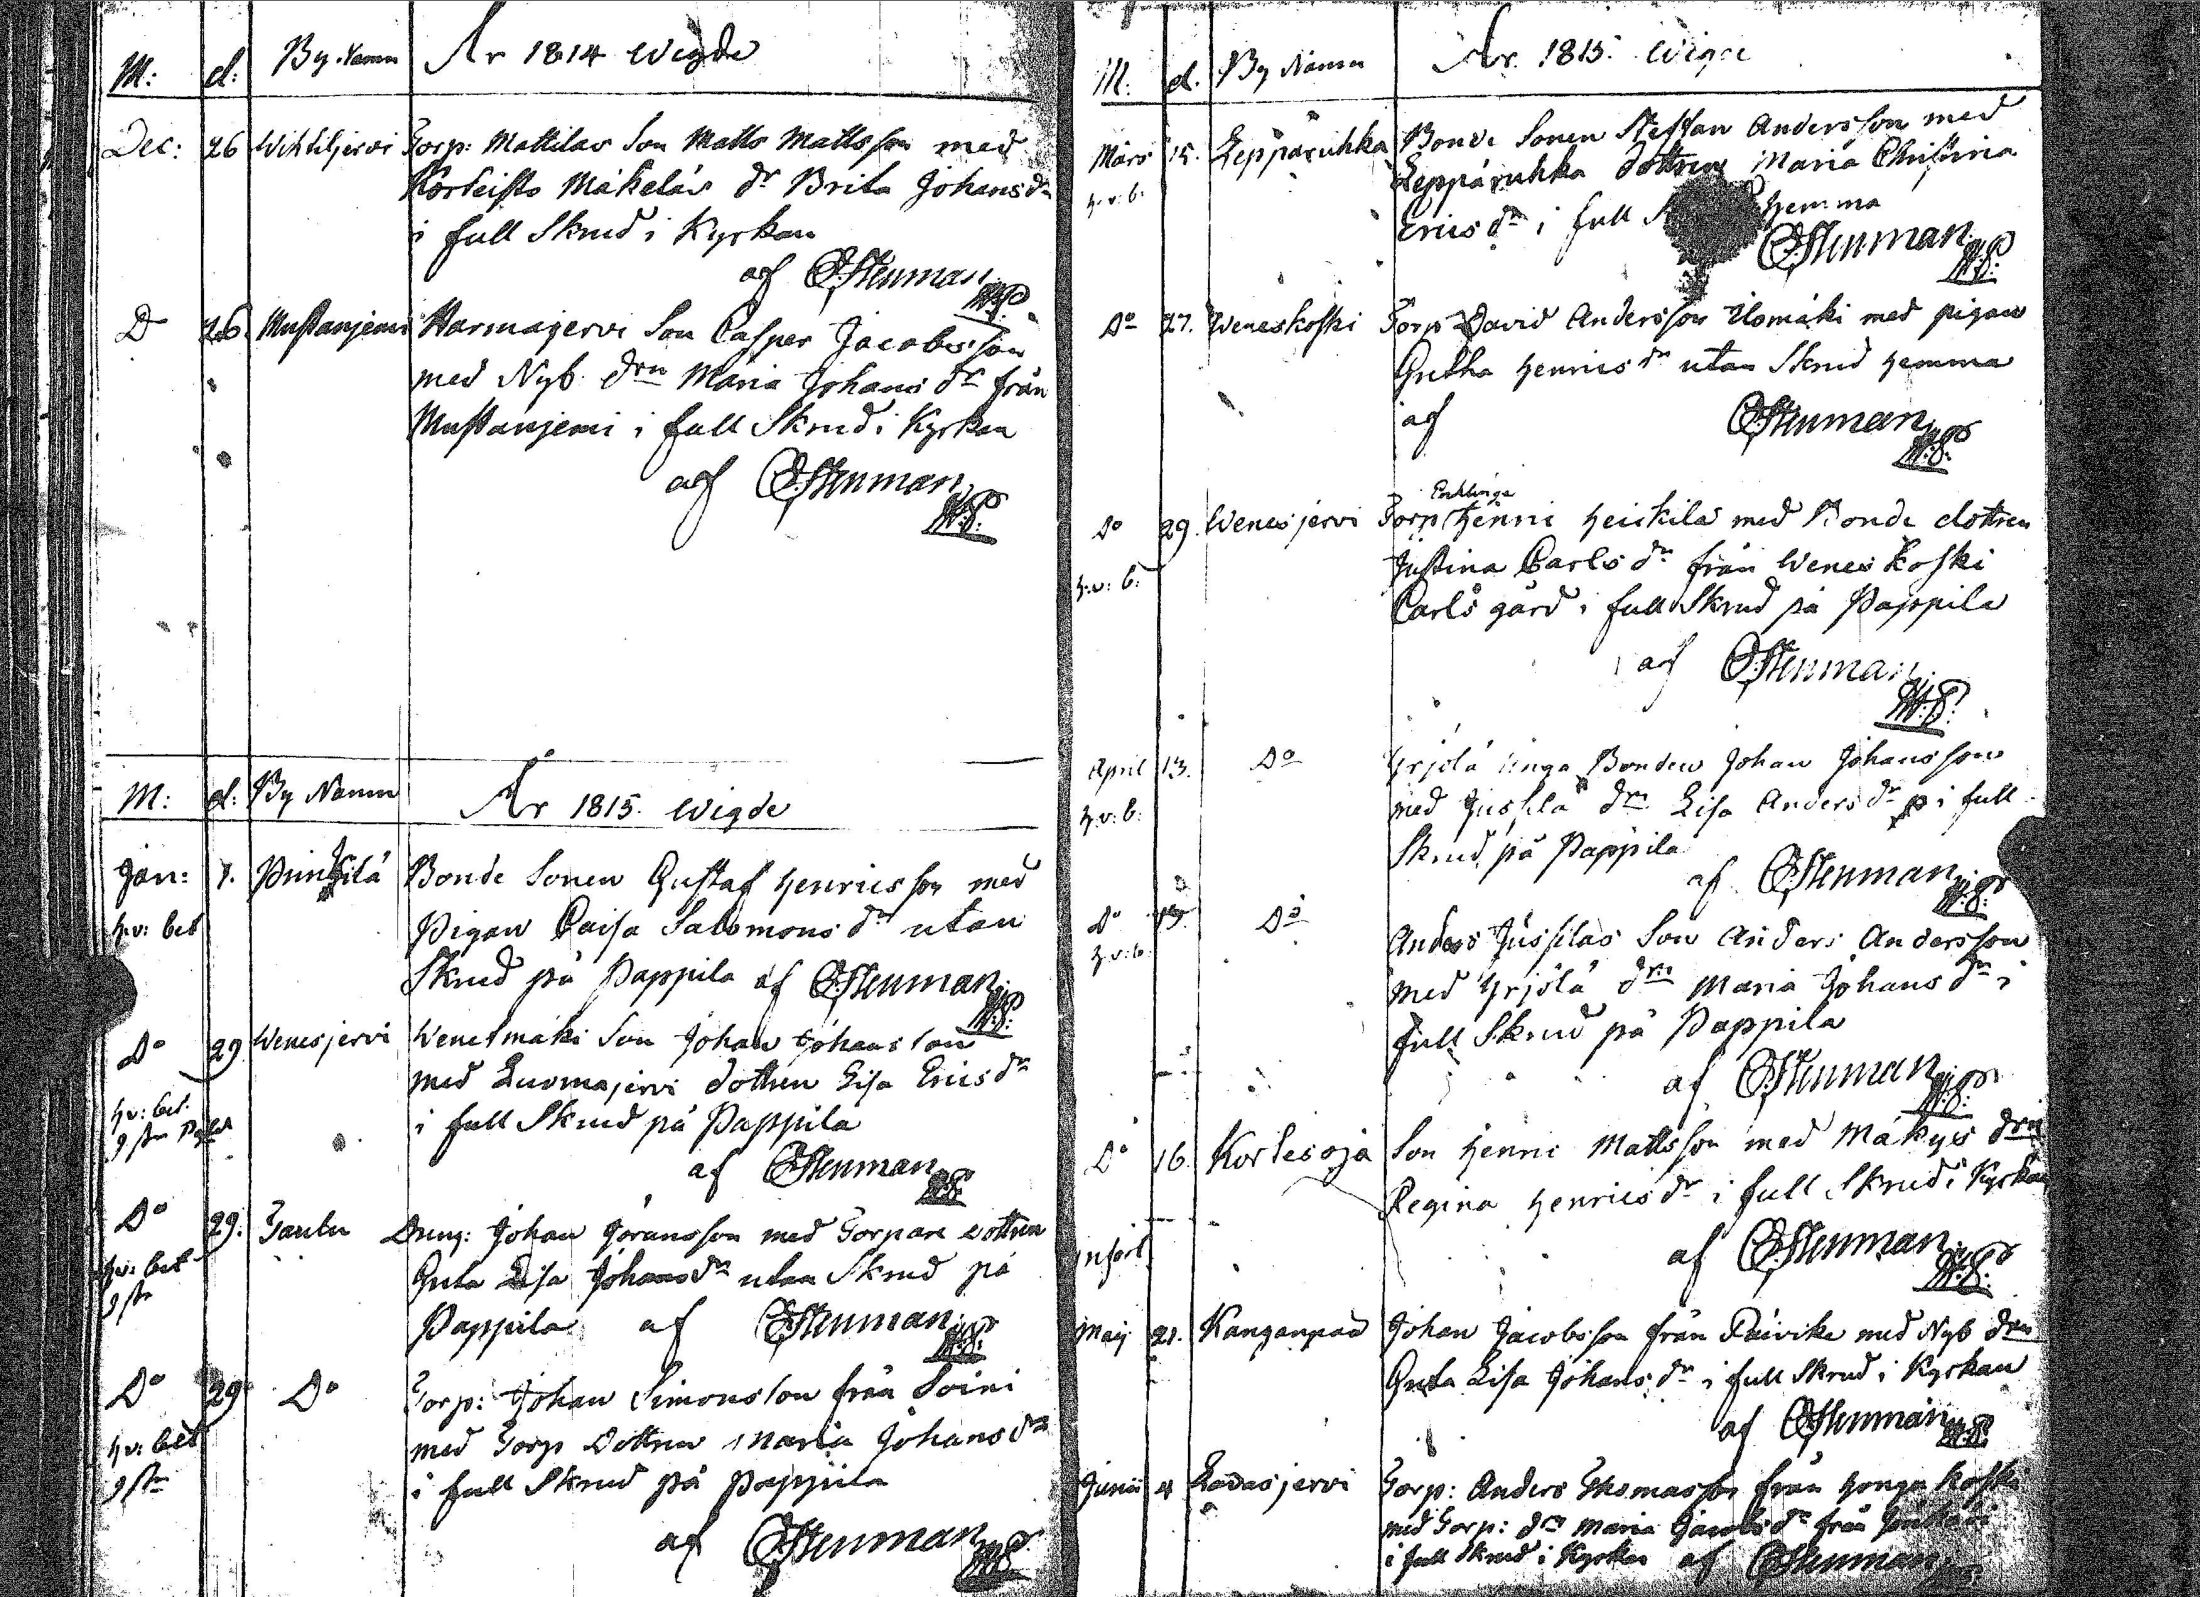 M: d: By Namn År 1814 Wigde
Dec: 26 Wihtiljervi Torp: Mattilas Son Matts Mattsson med
Korteisto Mäkeläs dr Brita Johans dr
i full Skrud i Kyrkan
af E Stenman
Do 26. Mustanjemi Harmajervi Son Casper Jacobsson
med Nyb. drn Maria Johans dr från
Mustanjemi i full Skrud i Kyrkan
af E Stenman
M: d: By Namn År 1815. Wigde
Jan: 1. Bonde Sonen Gustaf Henricsson med
h.v: bet Pigan Caisa Salomons dr utan
Skrud på Pappila af E Stenman
Do 29 Wenesjervi Wenelmäki Son Johan Johansson
med Luomajervi dottren Lisa Erics dr
h.v: bet.
i full Skrud på Pappila
af E Stenman
Do 29. Dreng: Johan Jöransson med Torpare dottren
h.v: bet Greta Lisa Johans dr utan Skrud på
Pappila af E Stenman
Do 29 Do Torp: Johan Simonsson från Soini
h.v: bet med Torp Dottren Maria Johans dr
i full Skrud på Pappila
af E Stenman
M: d. By Namn År. 1815. Wigde
Mars 15. Leppäruhka Bonde Sonen Steffan Andersson med
h.v: b. Leppäruhka dottren Maria Christina
Erics dr i full Hemma
E Stenman
Do 27. Weneskoski Torp David Andersson Ilomäki med pigan
Gretha Henrics dr utan Skrud hemma
af E Stenman
Enklinge
Do 29. Wenesjervi Torp Henric Heickilä med Bonde dottren
h.v: b. Justina Carls dr från Weneskoski
Carls gård i full Skrud på Pappila
af E Stenman
April 13. Do Yrjölä unga Bonden Johan Johansson
h.v: b. med Jussila drn Lisa Anders dr i full
Skrud på Pappila
af E Stenman
Do Do Anders Jussilas Son Anders Andersson
h.v: b. med Yrjölä drn Maria Johans dr i
full Skrud på Pappila
af E Stenman
Do 16. Kortesoja Son Henric Mattsson med Mäkys drn
Regina Henrics dr i full Skrud i Kyrkan
af E Stenman
Maij 21. Kanganpää Johan Jacobsson från med Nyb drn
Greta Lisa Johans dr i full Skrud i Kyrkan
af E Stenman
Junii 4 Torp: Anders Thomasson från Honga koski
med Torp: drn Maria Jacobs dr från
i full Skrud i Kyrkan af E Stenman